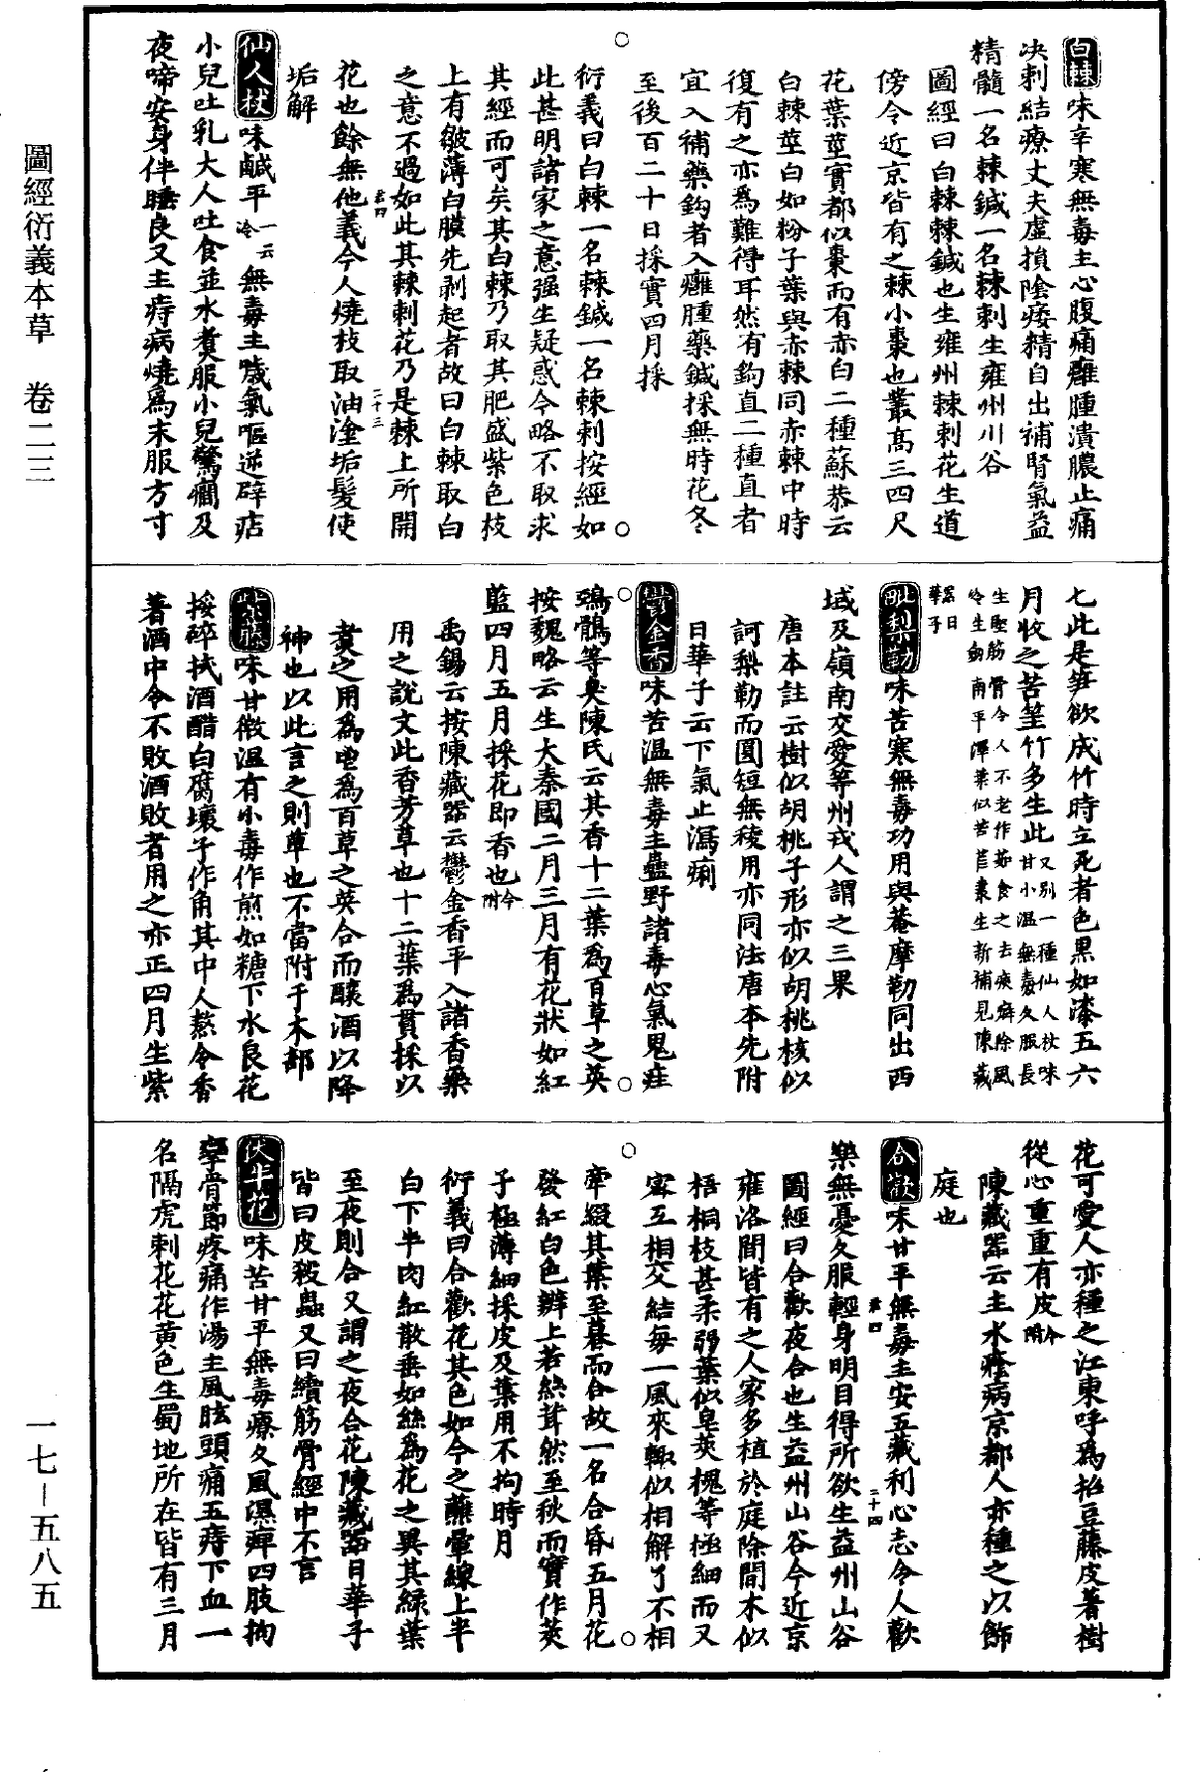 白棘味辛寒無毒主心腹痛癰腫潰膿止痛
决刺結療丈夫虛損陰痿精自出補腎氣益
精髓一名棘鍼一名棘刺生雍州川谷
圖經曰白棘棘鍼也生雍州棘刺花生道
傍今近京皆有之棘小棗也叢高三四尺
花葉莖實都似棗而有赤白二種蘇恭云
白棘莖白如粉子葉與赤棘同赤棘中時
復有之亦為難得耳然有鈎直二種直者
宜入補藥鈎者入癰腫藥鍼採無時花冬
至後百二十日採實四月採
衍義曰白棘一名棘鍼一名棘刺按經如
此甚明諸家之意强生疑惑今略不取求
其經而可矣其白棘乃取其肥盛紫色枝
上有皺薄白膜先剥起者故曰白棘取白
之意不過如此其棘刺花乃是棘上所開
花也餘無他義今人燒枝取油塗垢髮使
垢解
仙人杖味鹹平一云冷無毒主噦氣嘔逆辟痁
小兒吐乳大人吐食並水煑服小兒驚癇及
夜啼安身伴睡良又主痔病燒爲末服方寸
七此是笋欲成竹時立死者色黒如漆五六
月收之苦筀竹多生此又別一種仙人杖味甘小温無毒久服長
生堅筋骨令人不老作茹食之去痰癖除風
冷生劒南平澤葉似苦苣叢生新補見陳藏
器日華子
毗梨勒味苦寒無毒功用與菴摩勒同出西
域及嶺南交愛等州戎人謂之三果
唐本註云樹似胡桃子形亦似胡桃核似
訶梨勒而圓短無稜用亦同法唐本先附
日華子云下氣止瀉痢
鬱金香味苦温無毒主蠱野諸毒心氣鬼疰
鴉鶻等臭陳氏云其香十二葉為百草之英
按魏略云生大秦國二月三月有花狀如紅
藍四月五月採花即香也今附
禹錫云按陳藏器云鬱金香平入諸香藥
用之說文此香芳草也十二葉爲貫採以
煑之用為鬯爲百草之英合而釀酒以降
神也以此言之則草也不當附于木部
紫藤味甘微温有小毒作煎如糖下水良花
挼碎拭酒醋白腐壞子作角其中人熬令香
著酒中令不敗酒敗者用之亦正四月生紫
花可愛人亦種之江東呼爲招豆藤皮著樹
從心重重有皮今附
陳藏器云主水癊病京都人亦種之以飾
庭也
合歡味甘平無毒主安五藏利心志令人歡
樂無憂久服輕身明目得所欲生益州山谷
圖經曰合歡夜合也生益州山谷今近京
雍洛間皆有之人家多植於庭除間木似
梧桐枝甚柔弱葉似皂莢槐等極細而又
密互相交結每一風來輙似相解了不相
牽綴其葉至暮而合故一名合昏五月花
發紅白色瓣上若絲茸然至秋而實作莢
子極薄細採皮及葉用不拘時月
衍義曰合歡花其色如今之蘸暈線上半
白下半肉紅散垂如絲為花之異其緑葉
至夜則合又謂之夜合花陳藏器日華子
皆曰皮殺蟲又曰續筋骨經中不言
伏牛花味苦甘平無毒療久風濕痺四肢拘
攣骨節疼痛作湯主風眩頭痛五痔下血一
名隔虎刺花花黄色生蜀地所在皆有三月
圖經衍義本草　卷二三
一七—五八五